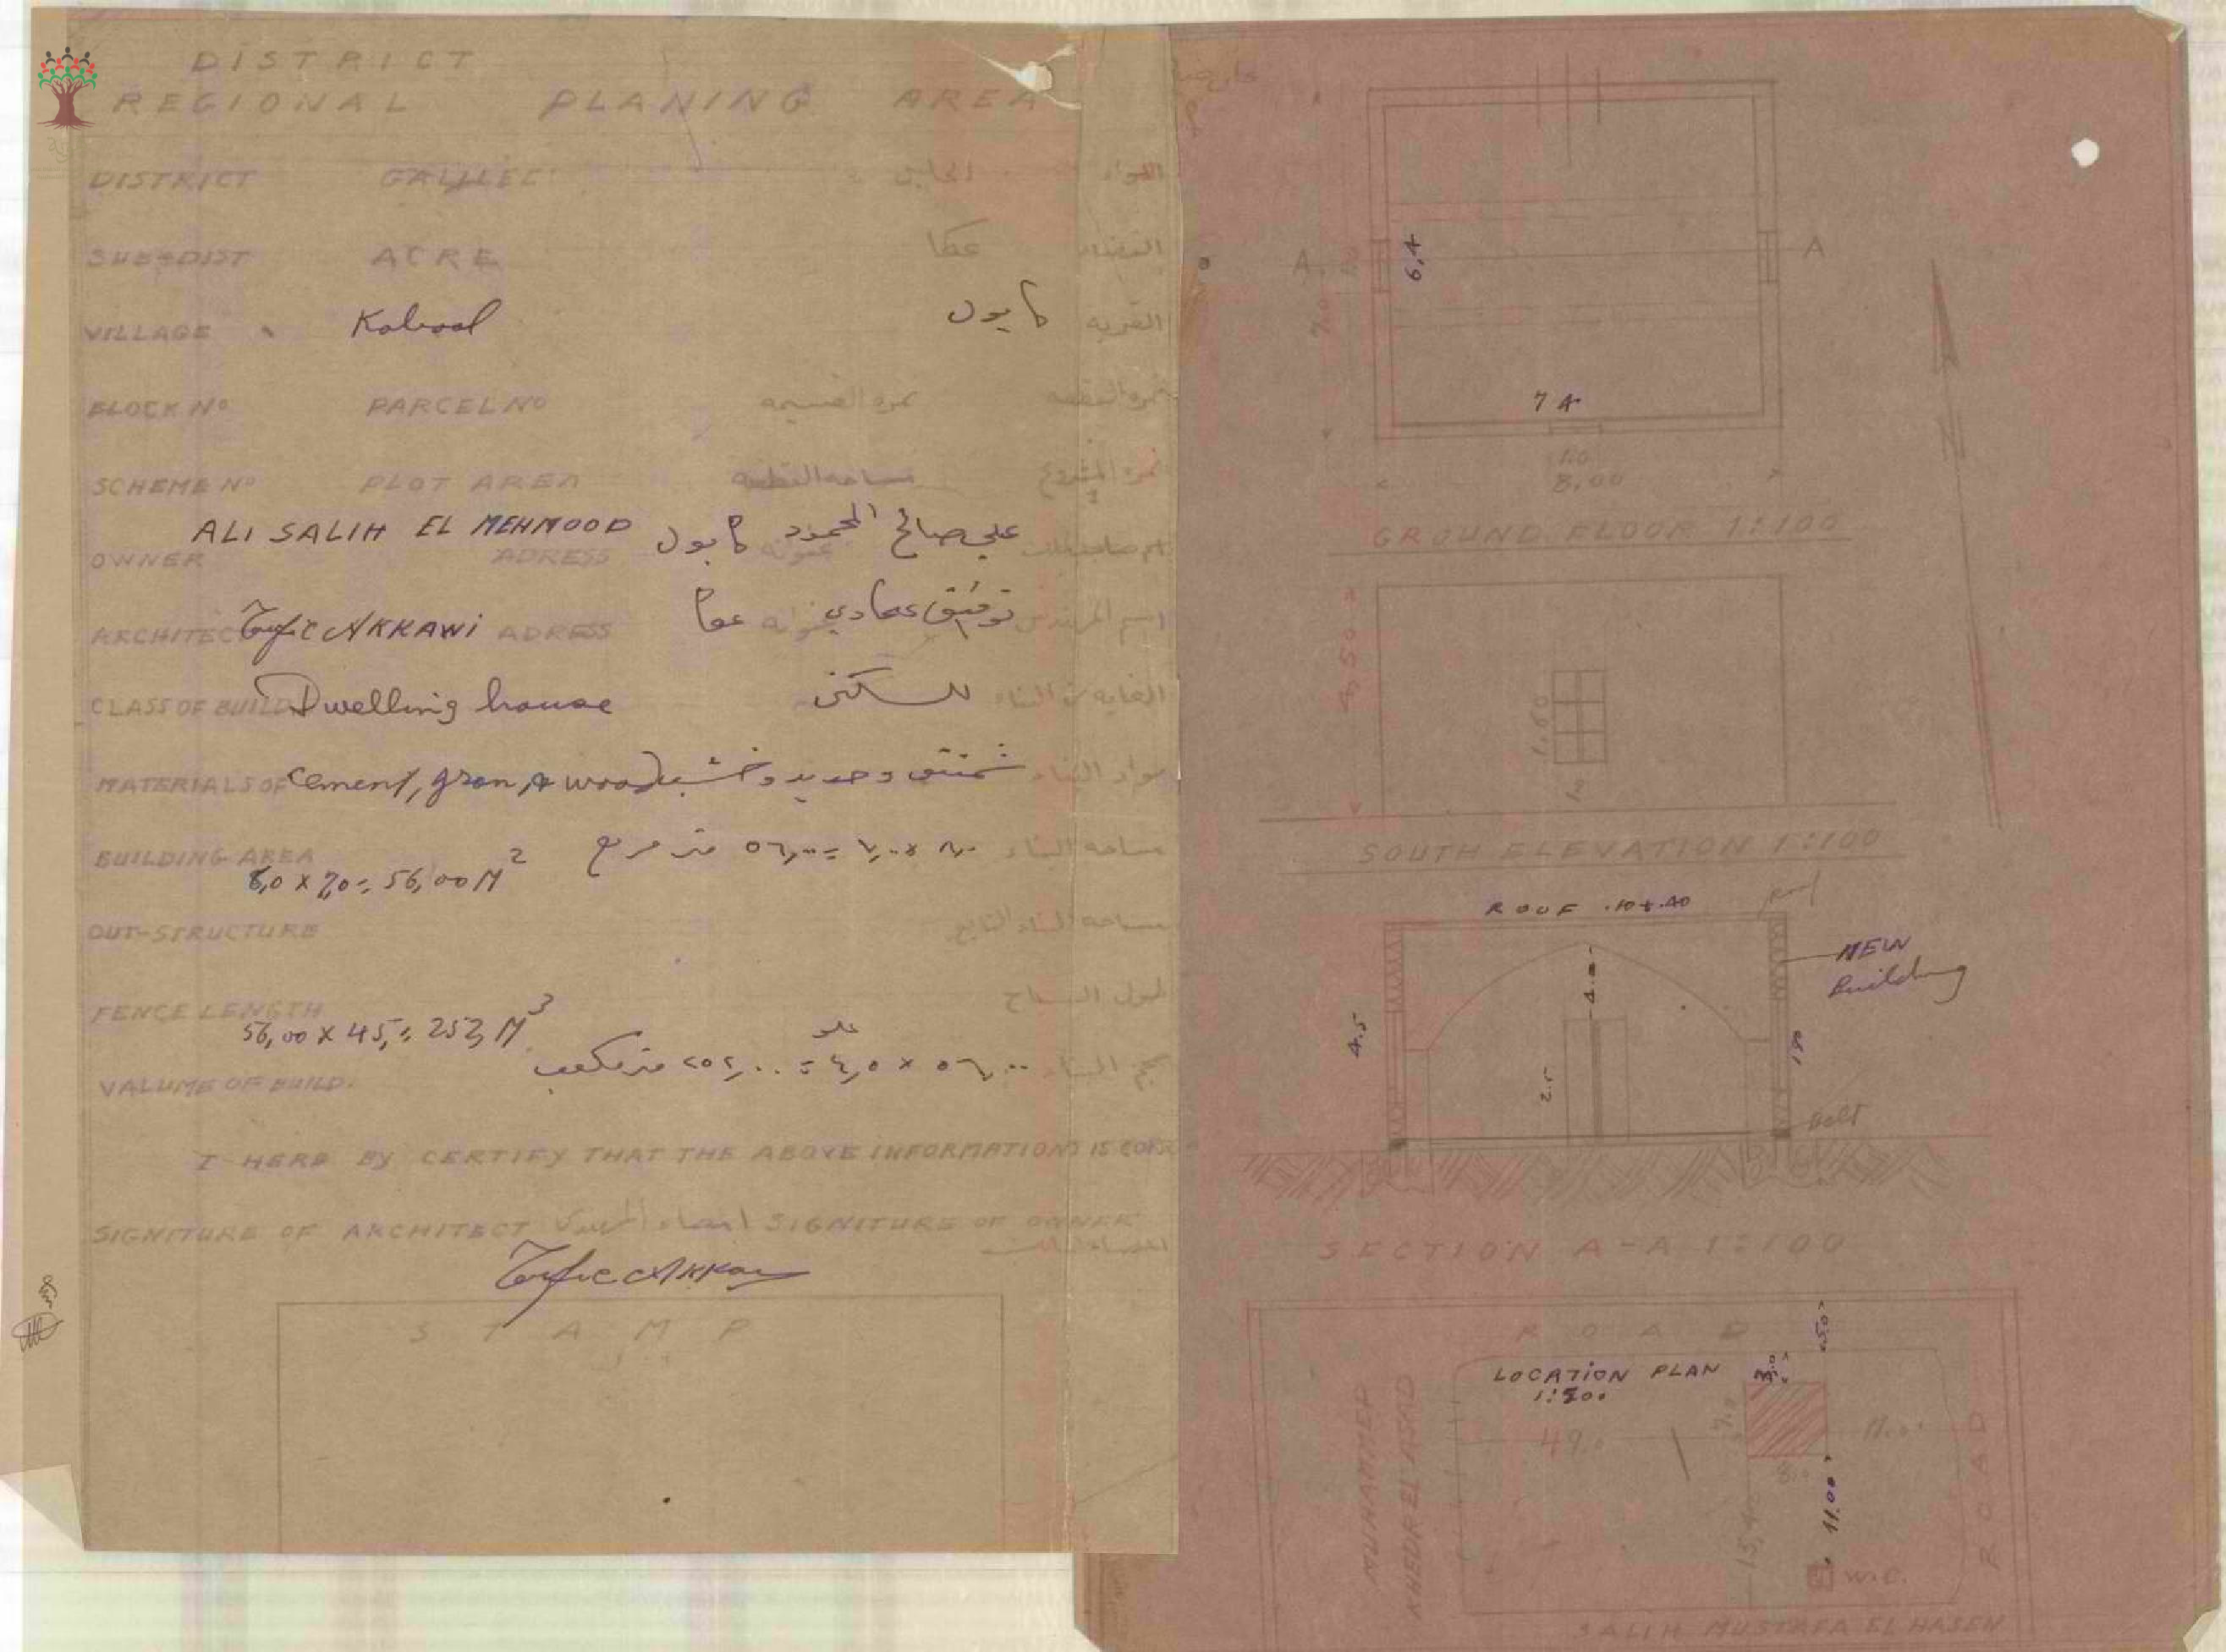 DISTRICT
REGIONAL PLANING AREA
DISTRICT GALILEE اللواء
SUB-DIST ACRE عكا القضاء
VILLAGE Kabool كابول القرية
BLOCK Nº PARCEL Nº نمره القسيمه
SCHEME Nº PLOT AREA مساحه القطعه نمره المشروع
ALI SALIH EL MEHMOOD علي صالح المحمود كابول
OWNER ADRESS عنوانه
ARCHITEC Tewfic AKKAWI ADRESS توفيق عكاوي عكا اسم المهندس
CLASS OF BUILD Dwelling house للسكن الغايه من البناء
MATERIALS OF Cement, Iron & wood شمنتو وحديد وخشب مواد البناء
BUILDING AREA ٨,٠٠ × ٧,٠٠ = ٥٦,٠٠ متر مربع مساحه البناء
8,0 x 7,0 = 56,00 M²
OUT-STRUCTURE مساحه البناء التابع
FENCE LENGTH طول السياج
56,00 x 45, = 252, M³
VALUME OF BUILD. ٥٦,٠٠ × ٤,٥ علو = ٢٥٢,٠٠ متر مكعب حجم البناء
I HERE BY CERTIFY THAT THE ABOVE INFORMATIONS IS
SIGNITURE OF ARCHITECT امضاء المهندس SIGNITURE OF OWNER
Tewfic Akkawi
STAMP
A A
6,4
7.0
7 4
1.0
8.00
GROUND FLOOR 1:100
4.50
1.60
SOUTH ELEVATION 1:100
ROUF .10+.40
NEW
Building
4.5
4.0
2.5
190
Belt
SECTION A-A 1:100
ROAD
5.0
LOCATION PLAN
1:500
3.0
MUHAMMED
KHEDR EL ASAD
49.0
7.0
8.0
11.0
ROAD
15,4
11.00
W.C.
SALIH MUSTAFA EL HASEN